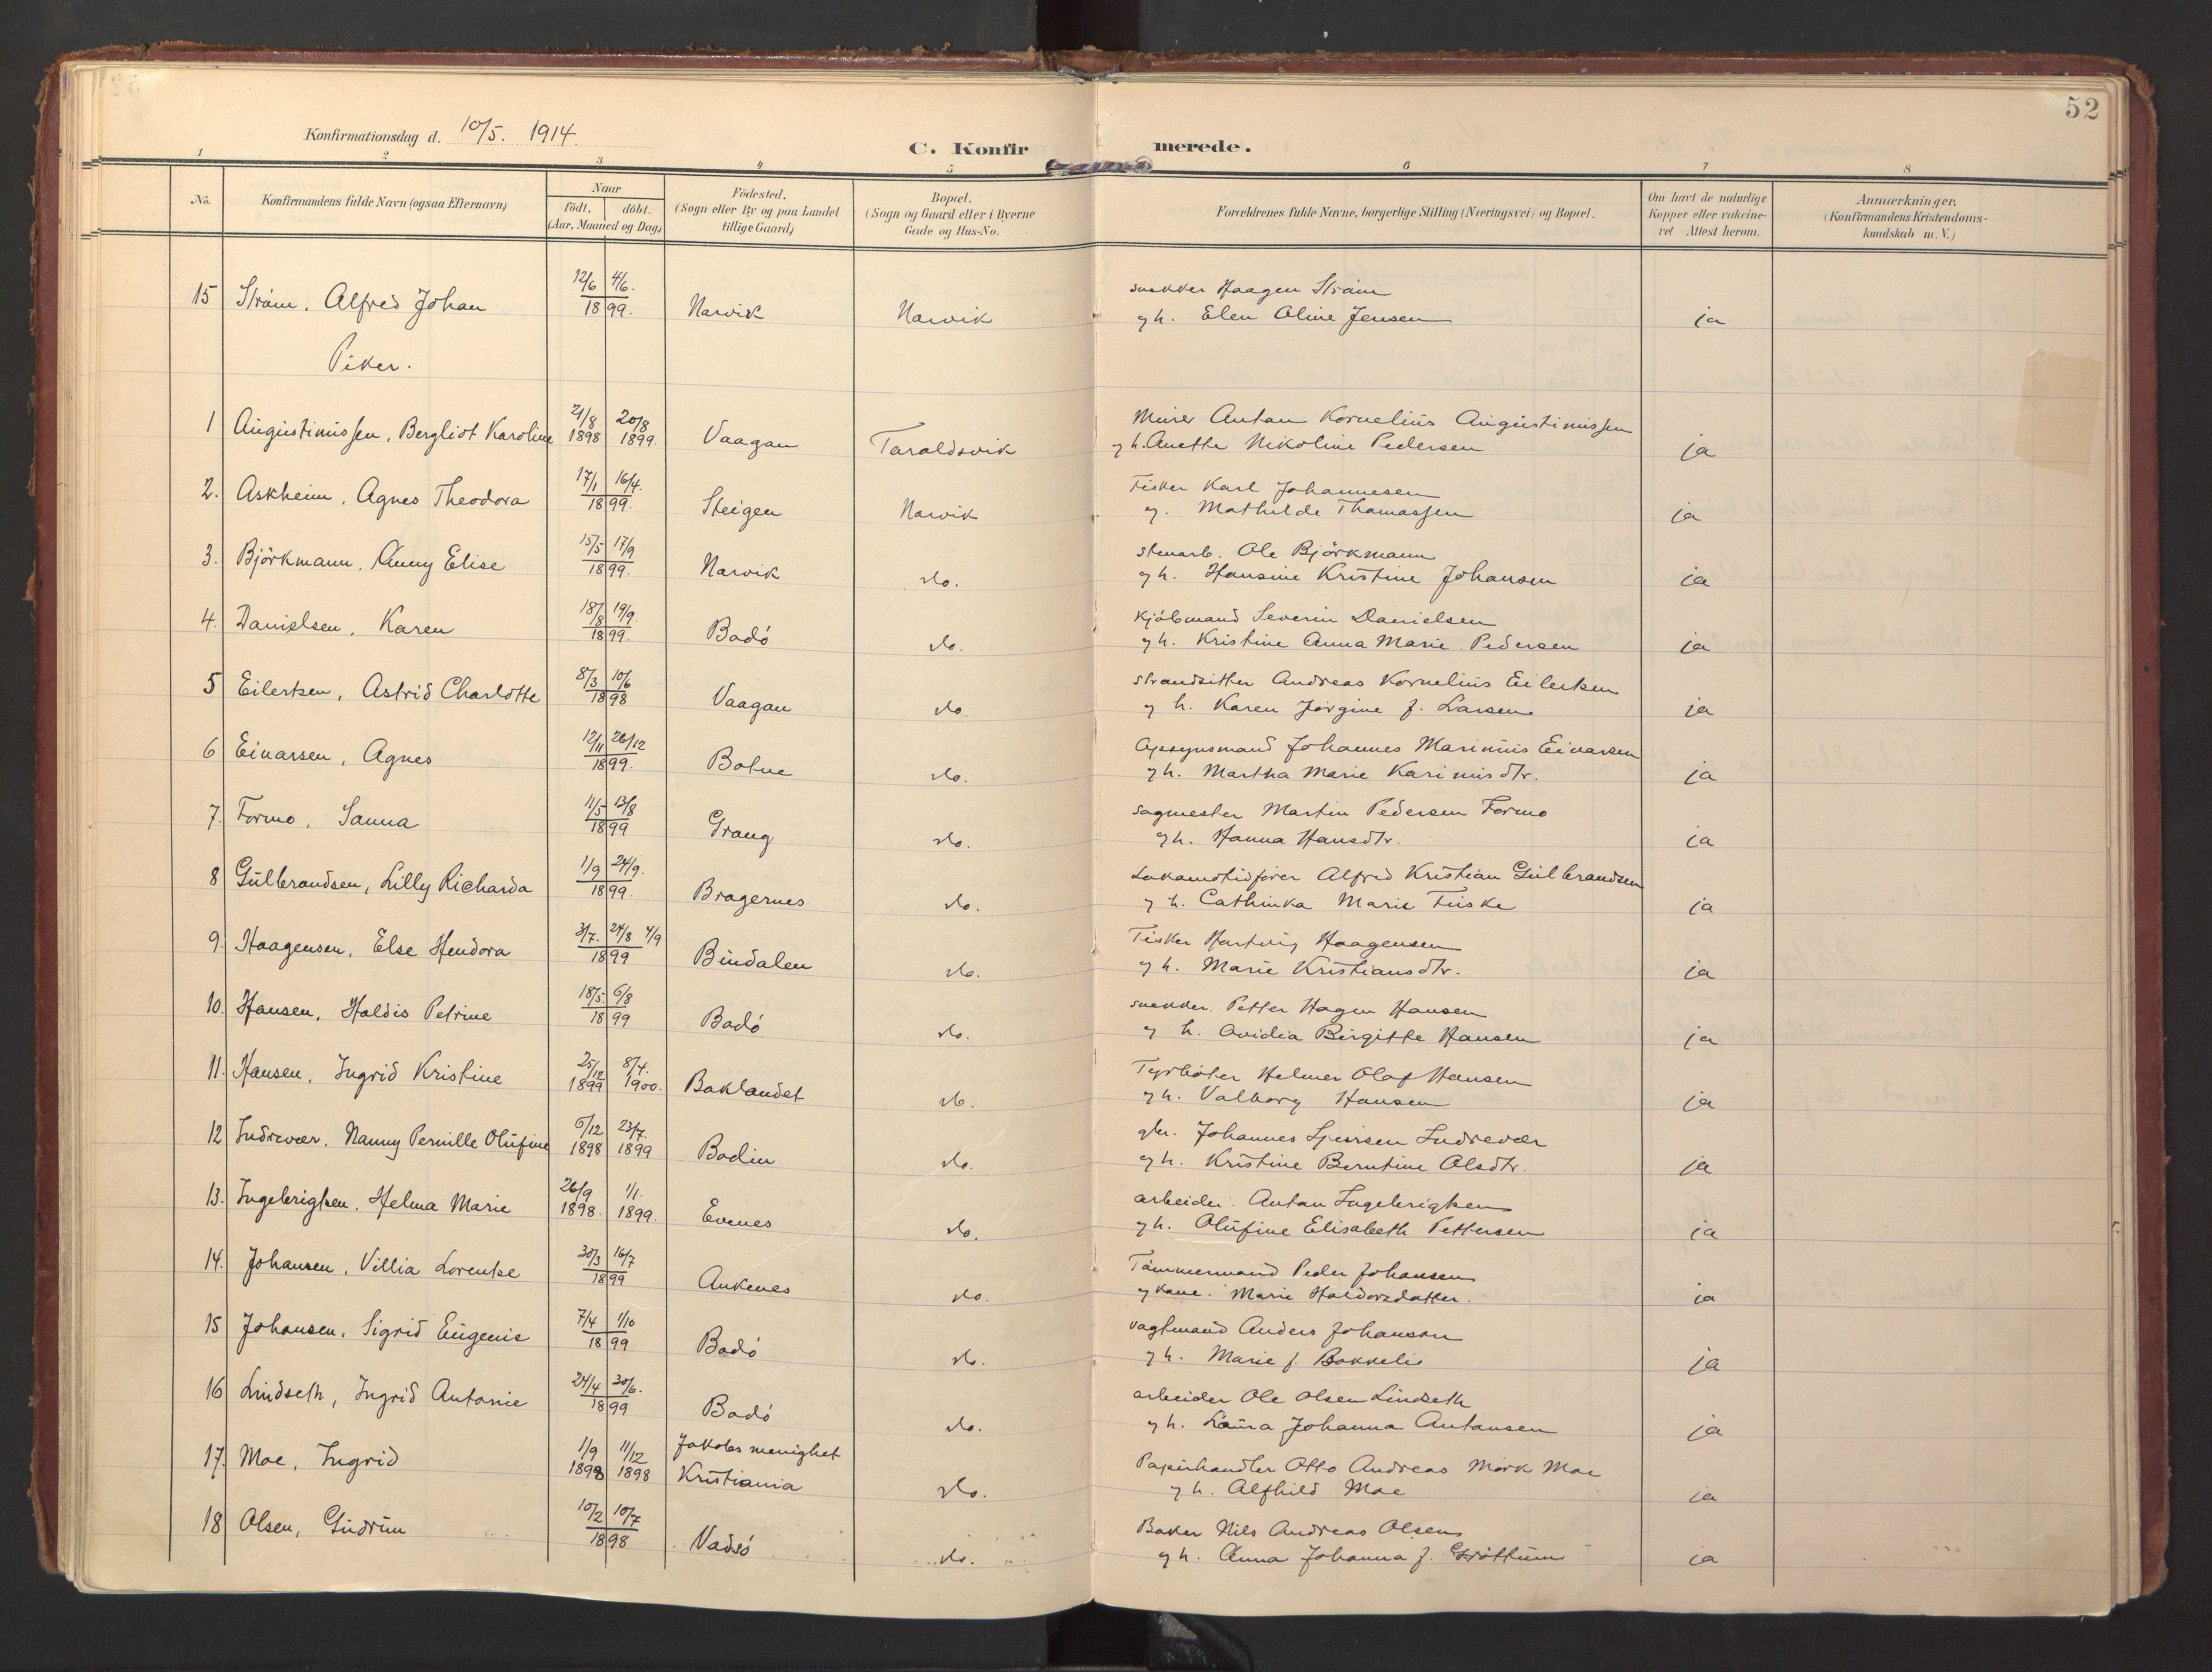 52
Konfirmationsdag d. 10/5. 1914.
C. Konfirmerede.
1 2 3 4 5 6 7 8
No.
Konfirmandens fulde Navn (ogsaa Efternavn)
Naar
födt. döbt.
(Aar, Maaned og Dag)
Födested.
(Sogn eller By og paa Landet
tillige Gaard)
Bopæl.
(Sogn og Gaard eller i Byerne
Gade og Hus-No.
Forældrenes fulde Navne, borgerlige Stilling (Næringsvei) og Bopæl.
Om havt de naturlige
Kopper eller vakcine-
ret Attest herom.
Anmærkninger.
(Konfirmandens Kristendoms-
kundskab m. V.)
15 Ström, Alfred Johan 12/6 4/6. 1899. Narvik Narvik snekker Haagen Ström
g h. Elen Oline Jensen ja
Piker.
1 Augustinussen, Bergliot Karoline 21/8 1898 20/8 1899. Vaagan Taraldsvik Murer Anton Kornelius Augustinussen
g h. Anette Nikoline Pedersen ja
2. Askheim, Agnes Theodora 17/1 16/4. 1899. Steigen Narvik Fisker Karl Johannesen
g. Mathilde Thomassen ja
3. Björkmann, Anny Elise 15/5 17/9 1899. Narvik do. stenarb. Ole Björkmann
g h. Hansine Kristine Johansen ja
4. Danielsen, Karen 18/8 19/9. 1899. Bodö do. Kjöbmand Severin Danielsen
g h. Kristine Anna Marie Pedersen ja
5 Eilertsen, Astrid Charlotte 8/3 10/6 1898 Vaagan do. strandsitter Andreas Kornelius Eilertsen
g h. Karen Jörgine f. Larsen ja
6 Einarsen, Agnes 12/11 26/12 1899. Botne do. Opsynsmand Johannes Marinius Einarsen
g h. Martha Marie Karinusdtr. ja
7. Formo, Sanna 11/5 13/8 1899 Grong do. sagmester Martin Pedersen Formo
g h. Hanna Hansdtr. ja
8 Gulbrandsen, Lilly Richarda 1/9 24/9. 1899. Bragernes do. Lokomotivförer Alfred Kristian Gulbrandsen
g h. Cathinka Marie Fuske ja
9. Haagensen, Else Hendora 3/7. 24/8 4/9 1899 Bindalen do. Fisker Hartvig Haagensen
g h. Marie Kristiansdtr. ja
10. Hansen, Haldis Petrine 18/5. 6/8 1899 Bodö do. snekker. Petter Hagen Hansen
g h. Ovidia Birgitte Hansen ja
11. Hansen, Ingrid Kristine 25/12 1899 8/4. 1900. Baklandet do. Fyrböter Helmer Olaf Hansen
g h. Valborg Hansen ja
12 Indrevær, Nanny Pernille Olufine 6/12 1898 23/7. 1899 Bodin do. gbr. Johannes Sjursen Indrevær
g h. Kristine Berntine Olsdtr. ja
13. Ingebrigtsen, Helma Marie 26/9 1898. 1/1. 1899. Evenes do. arbeider. Anton Ingebrigtsen
g h. Olufine Elisabeth Pettersen ja
14. Johansen, Villia Lorentse 30/3 16/7 1899 Ankenes do. Tömmermand Peder Johansen
g kone. Marie Haldorsdatter. ja
15 Johansen, Sigrid Eugenie 7/4 1/10 1899 Bodö do. vagtmand Anders Johanson
g h. Marie f. Bakkelie ja
16 Lindseth, Ingrid Antonie 24/4 30/6. 1899 Bodö do. arbeider Ole Olsen Lindseth
g h. Laura Johanna Antonsen ja
17. Moe, Ingrid 1/9 1898 11/12 1898 Jakobs menighet Kristiania do. Papirhandler Otto Andreas Mörk Moe
g h. Alfhild Moe ja
18 Olsen, Gudrun 10/2 10/7 1898 Vadsö do. Baker Nils Andreas Olsen
g h. Anna Johanna f. Gröttum ja